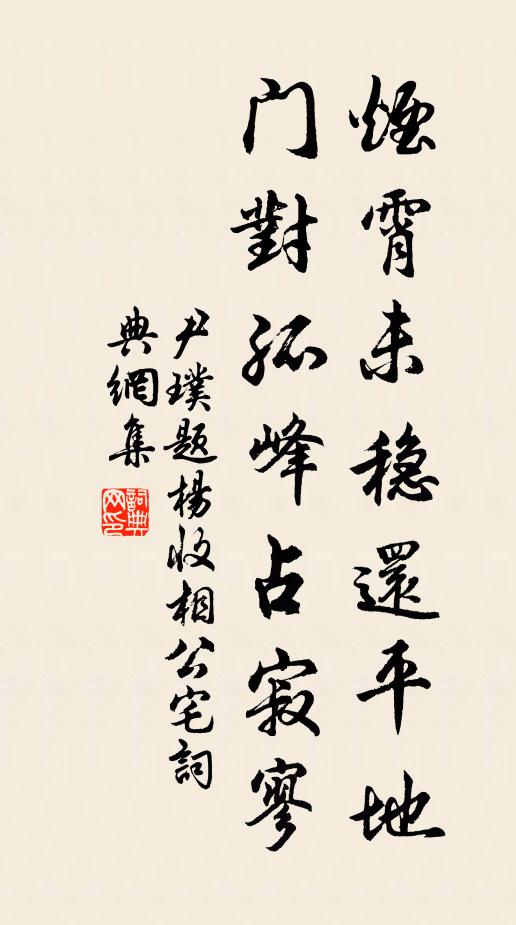 煙霄未穩還平地
門對孤峰占寂寥
尹璞題楊收相公宅詞
典網集
詞典
网印